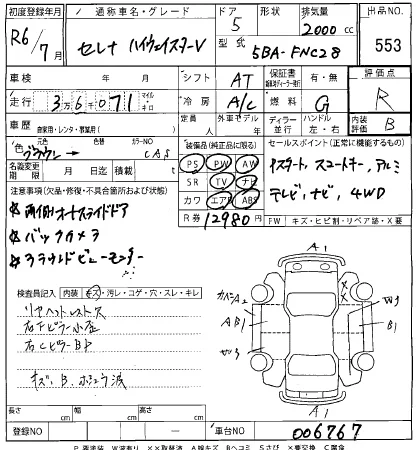 初度登録年月 R6/7月
通称車名・グレード セレナ ハイウェイスターV
ドア 5
形状
排気量 2000 cc
型式 5BA-FNC28
出品No. 553
車検 年 月
シフト AT
保証書 有・無
評価点 R
走行 36071 マイル キロ
冷房 A/C
燃料 G
内装 B
車歴 自家用・レンタ・事業用( )
定員 人
外車モデル 年
ディーラー 並行
ハンドル 左・右
色 ブラウン→
カラーNO CAS
名義変更期限 月 日迄
積載量 t
装備品(純正品に限る)
PS PW AW
SR TV ナビ
カワ エアB ABS
R券 12980円
セールスポイント(正常に機能するもの)
Pスタート、スマートキー、アルミ
テレビ、ナビ、4WD
FW キズ・ヒビ割・リペア跡・X要
注意事項(欠品・修復・不具合箇所および状態)
両側オートスライドドア
バックカメラ
アラウンドビューモニター
検査員記入 内装 キズ・汚レ・コゲ・穴・スレ・キレ
リヤヘットレスト欠
右Cピラー BP
キズ、B、ホシュウ波
A1
カバンA2
A B1
W3
B1
X
X
A1
長さ cm
幅 cm
高さ cm
登録NO
車台NO 006767